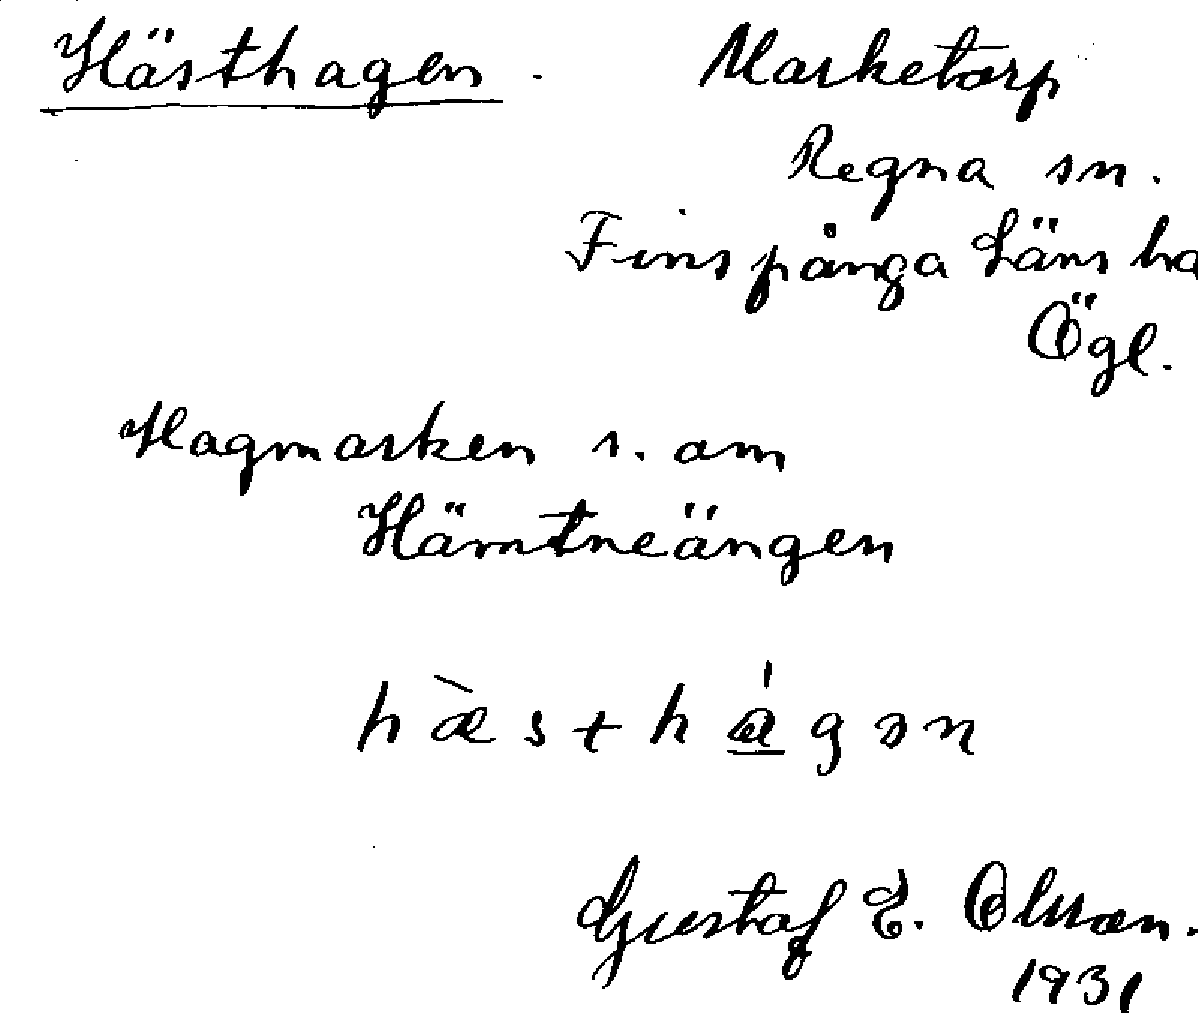 Hästhagen. Marketorp
Regna sn.
Finspånga Läns hd
Ögl.
Hagmarken s. om
Hämtneängen
hæ̀sthágən
Gustaf E. Olsson.
1931